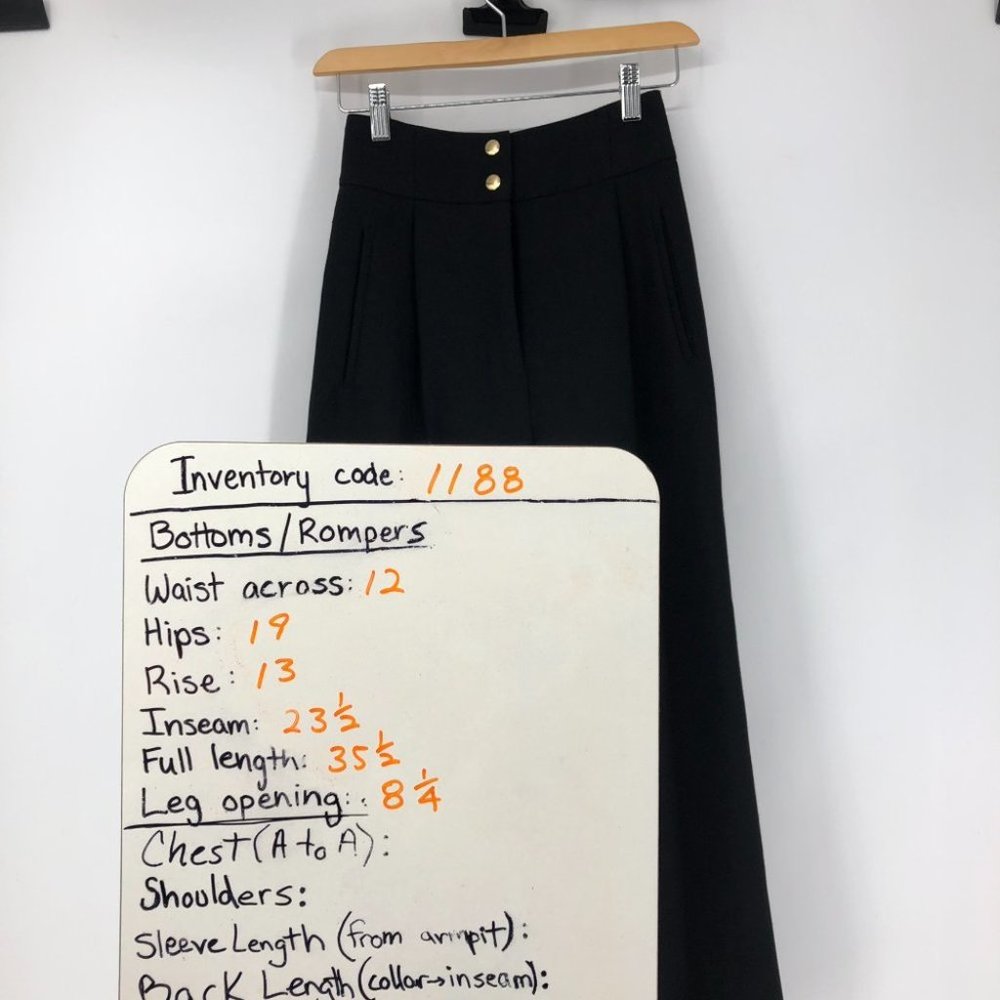 Inventory code: 1188
Bottoms/Rompers
Waist across: 12
Hips: 19
Rise: 13
Inseam: 23 1/2
Full length: 35 1/2
Leg opening: 8 1/4
Chest (A to A):
Shoulders:
Sleeve Length (from armpit):
Back Length (collar→inseam):